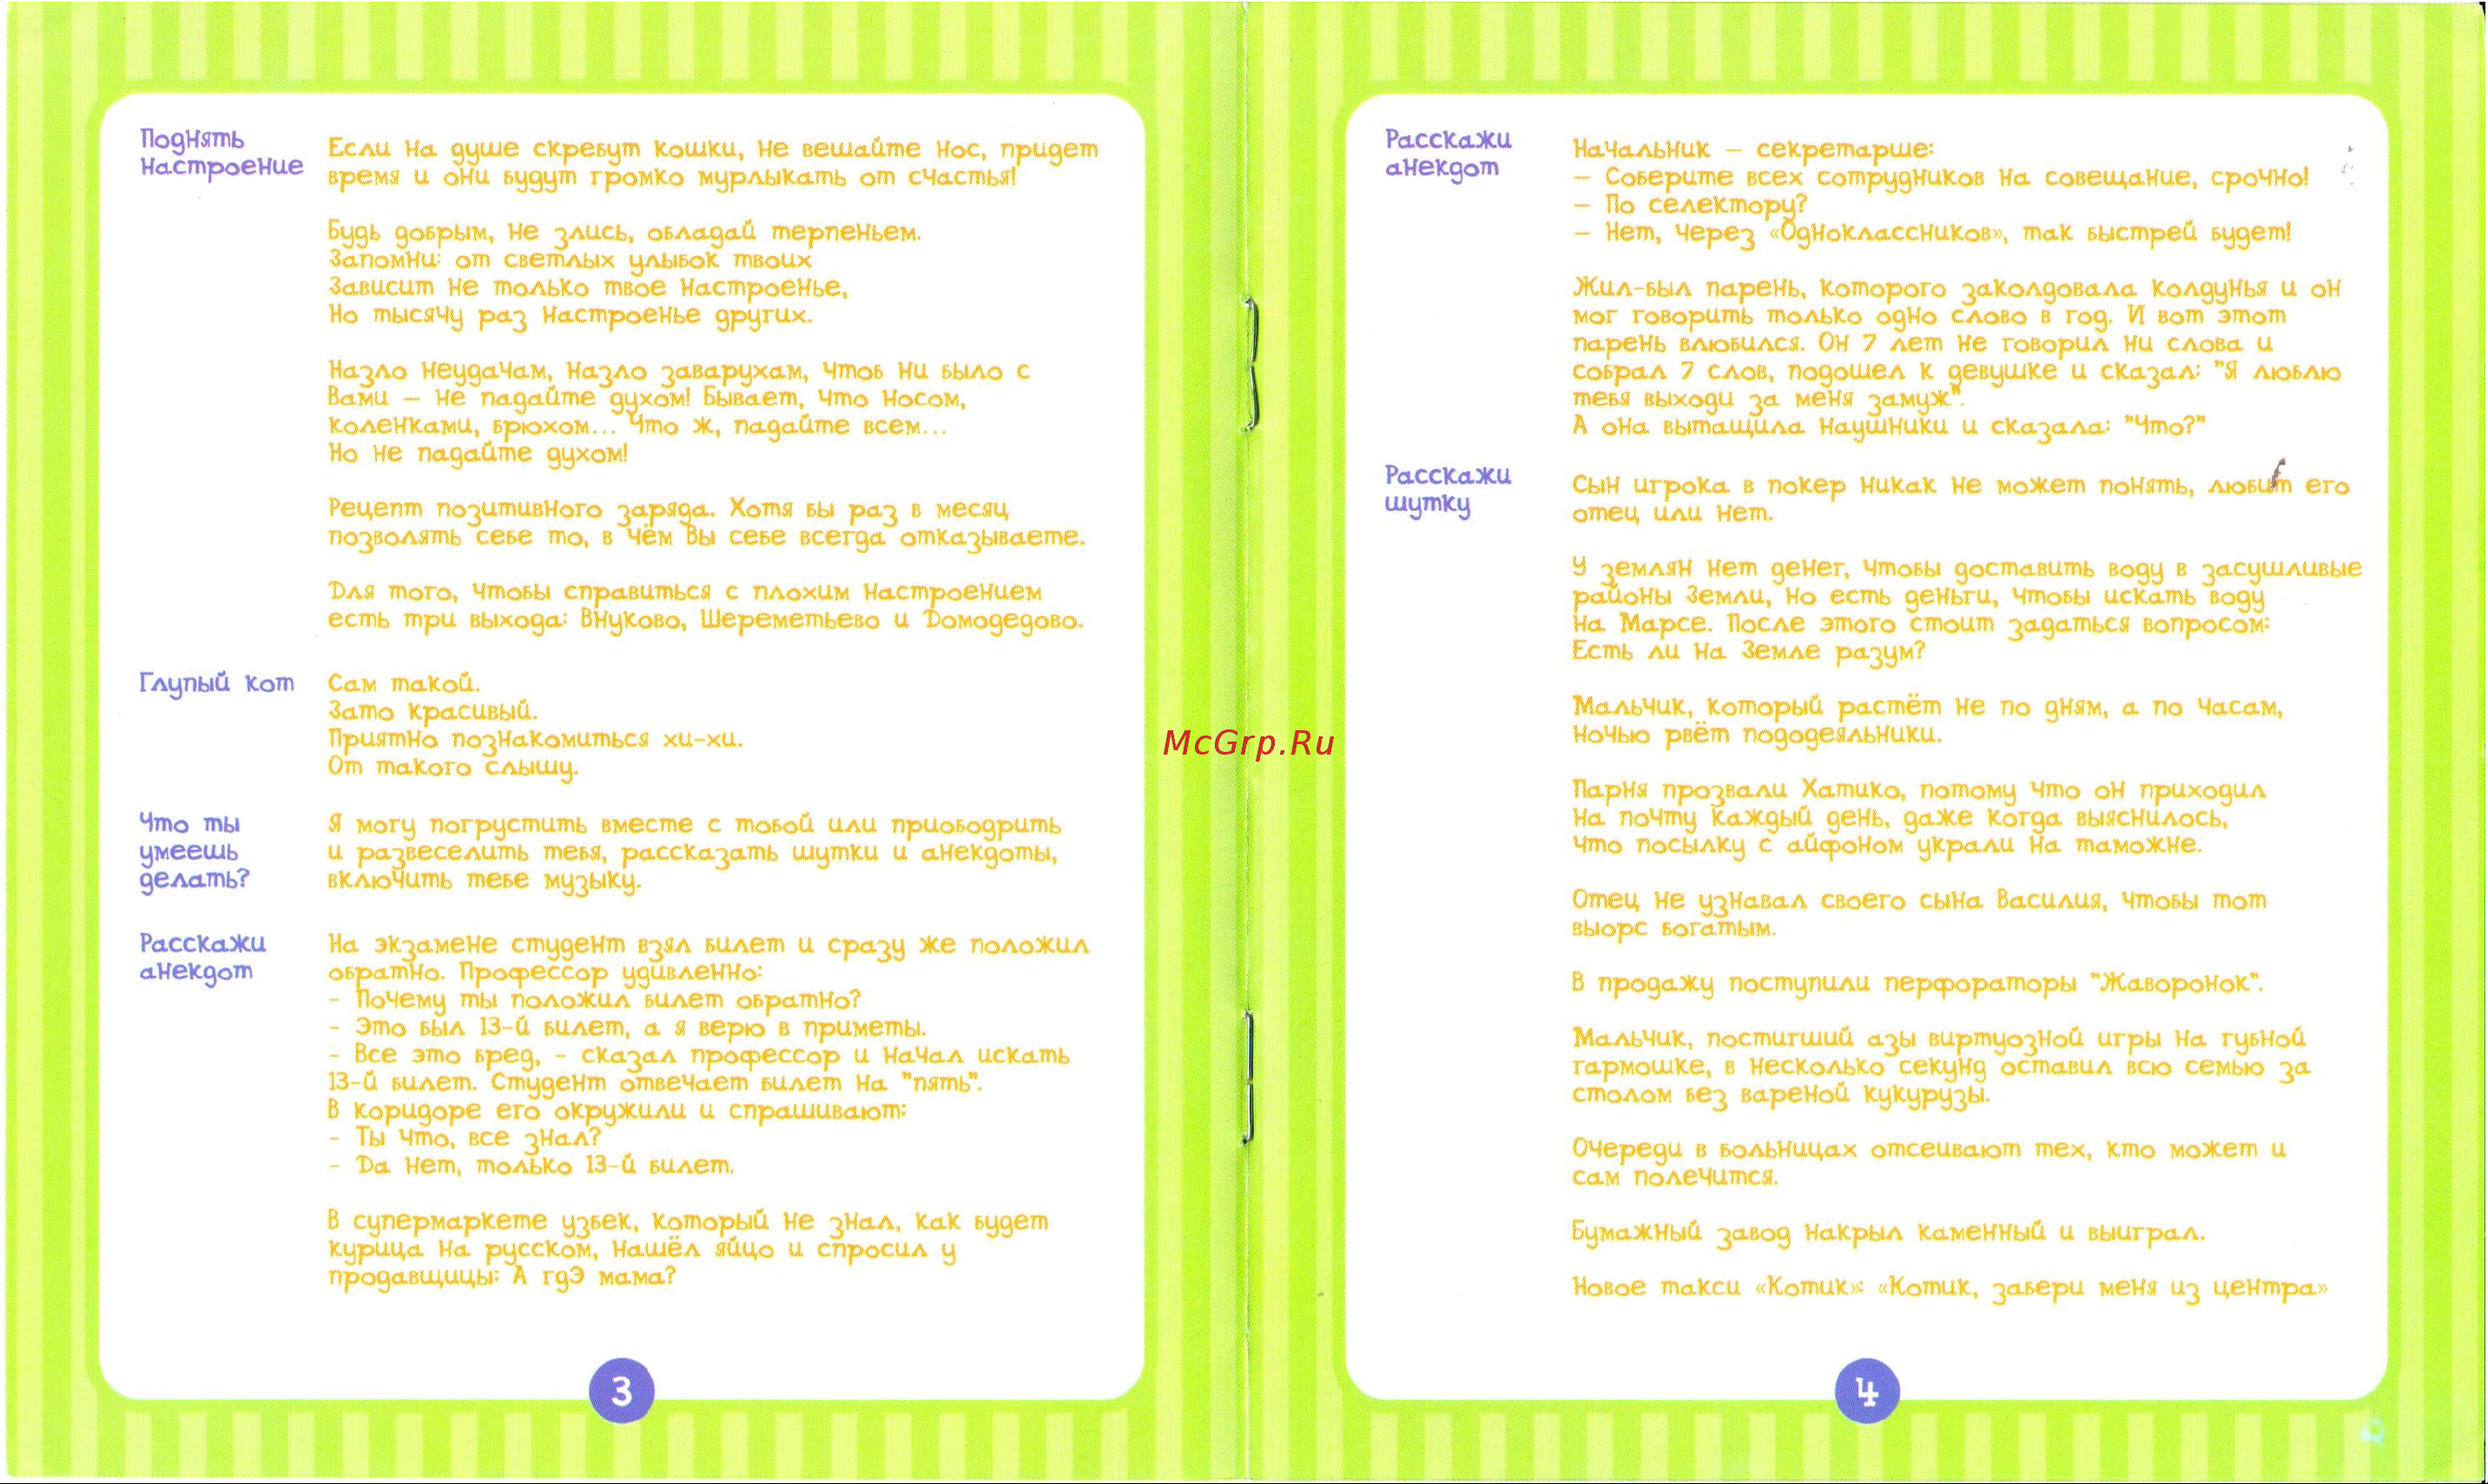 Поднять
настроение
Если на душе скребут кошки, не вешайте нос, придет
время и они будут громко мурлыкать от счастья!
Будь добрым, не злись, обладай терпеньем.
Запомни: от светлых улыбок твоих
Зависит не только твое настроенье,
Но тысячу раз настроенье других.
Назло неудачам, назло заварухам, чтоб ни было с
Вами – не падайте духом! Бывает, что носом,
коленками, брюхом... Что ж, падайте всем...
Но не падайте духом!
Рецепт позитивного заряда. Хотя бы раз в месяц
позволять себе то, в чём Вы себе всегда отказываете.
Для того, чтобы справиться с плохим настроением
есть три выхода: Внуково, Шереметьево и Домодедово.
Глупый кот
Сам такой.
Зато красивый.
Приятно познакомиться хи-хи.
От такого слышу.
Что ты
умеешь
делать?
Я могу погрустить вместе с тобой или приободрить
и развеселить тебя, рассказать шутки и анекдоты,
включить тебе музыку.
Расскажи
анекдот
На экзамене студент взял билет и сразу же положил
обратно. Профессор удивленно:
- Почему ты положил билет обратно?
- Это был 13-й билет, а я верю в приметы.
- Все это бред, - сказал профессор и начал искать
13-й билет. Студент отвечает билет на "пять".
В коридоре его окружили и спрашивают:
- Ты что, все знал?
- Да нет, только 13-й билет.
В супермаркете узбек, который не знал, как будет
курица на русском, нашёл яйцо и спросил у
продавщицы: А гдЭ мама?
3
McGrp.Ru
Расскажи
анекдот
Начальник – секретарше:
– Соберите всех сотрудников на совещание, срочно!
– По селектору?
– Нет, через «Одноклассников», так быстрей будет!
Жил-был парень, которого заколдовала колдунья и он
мог говорить только одно слово в год. И вот этот
парень влюбился. Он 7 лет не говорил ни слова и
собрал 7 слов, подошел к девушке и сказал: "Я люблю
тебя выходи за меня замуж".
А она вытащила наушники и сказала: "Что?"
Расскажи
шутку
Сын игрока в покер никак не может понять, любит его
отец или нет.
У землян нет денег, чтобы доставить воду в засушливые
районы Земли, но есть деньги, чтобы искать воду
на Марсе. После этого стоит задаться вопросом:
Есть ли на Земле разум?
Мальчик, который растёт не по дням, а по часам,
ночью рвёт пододеяльники.
Парня прозвали Хатико, потому что он приходил
на почту каждый день, даже когда выяснилось,
что посылку с айфоном украли на таможне.
Отец не узнавал своего сына Василия, чтобы тот
вырос богатым.
В продажу поступили перфораторы "Жаворонок".
Мальчик, постигший азы виртуозной игры на губной
гармошке, в несколько секунд оставил всю семью за
столом без вареной кукурузы.
Очереди в больницах отсеивают тех, кто может и
сам полечится.
Бумажный завод накрыл каменный и выиграл.
Новое такси «Котик»: «Котик, забери меня из центра»
4